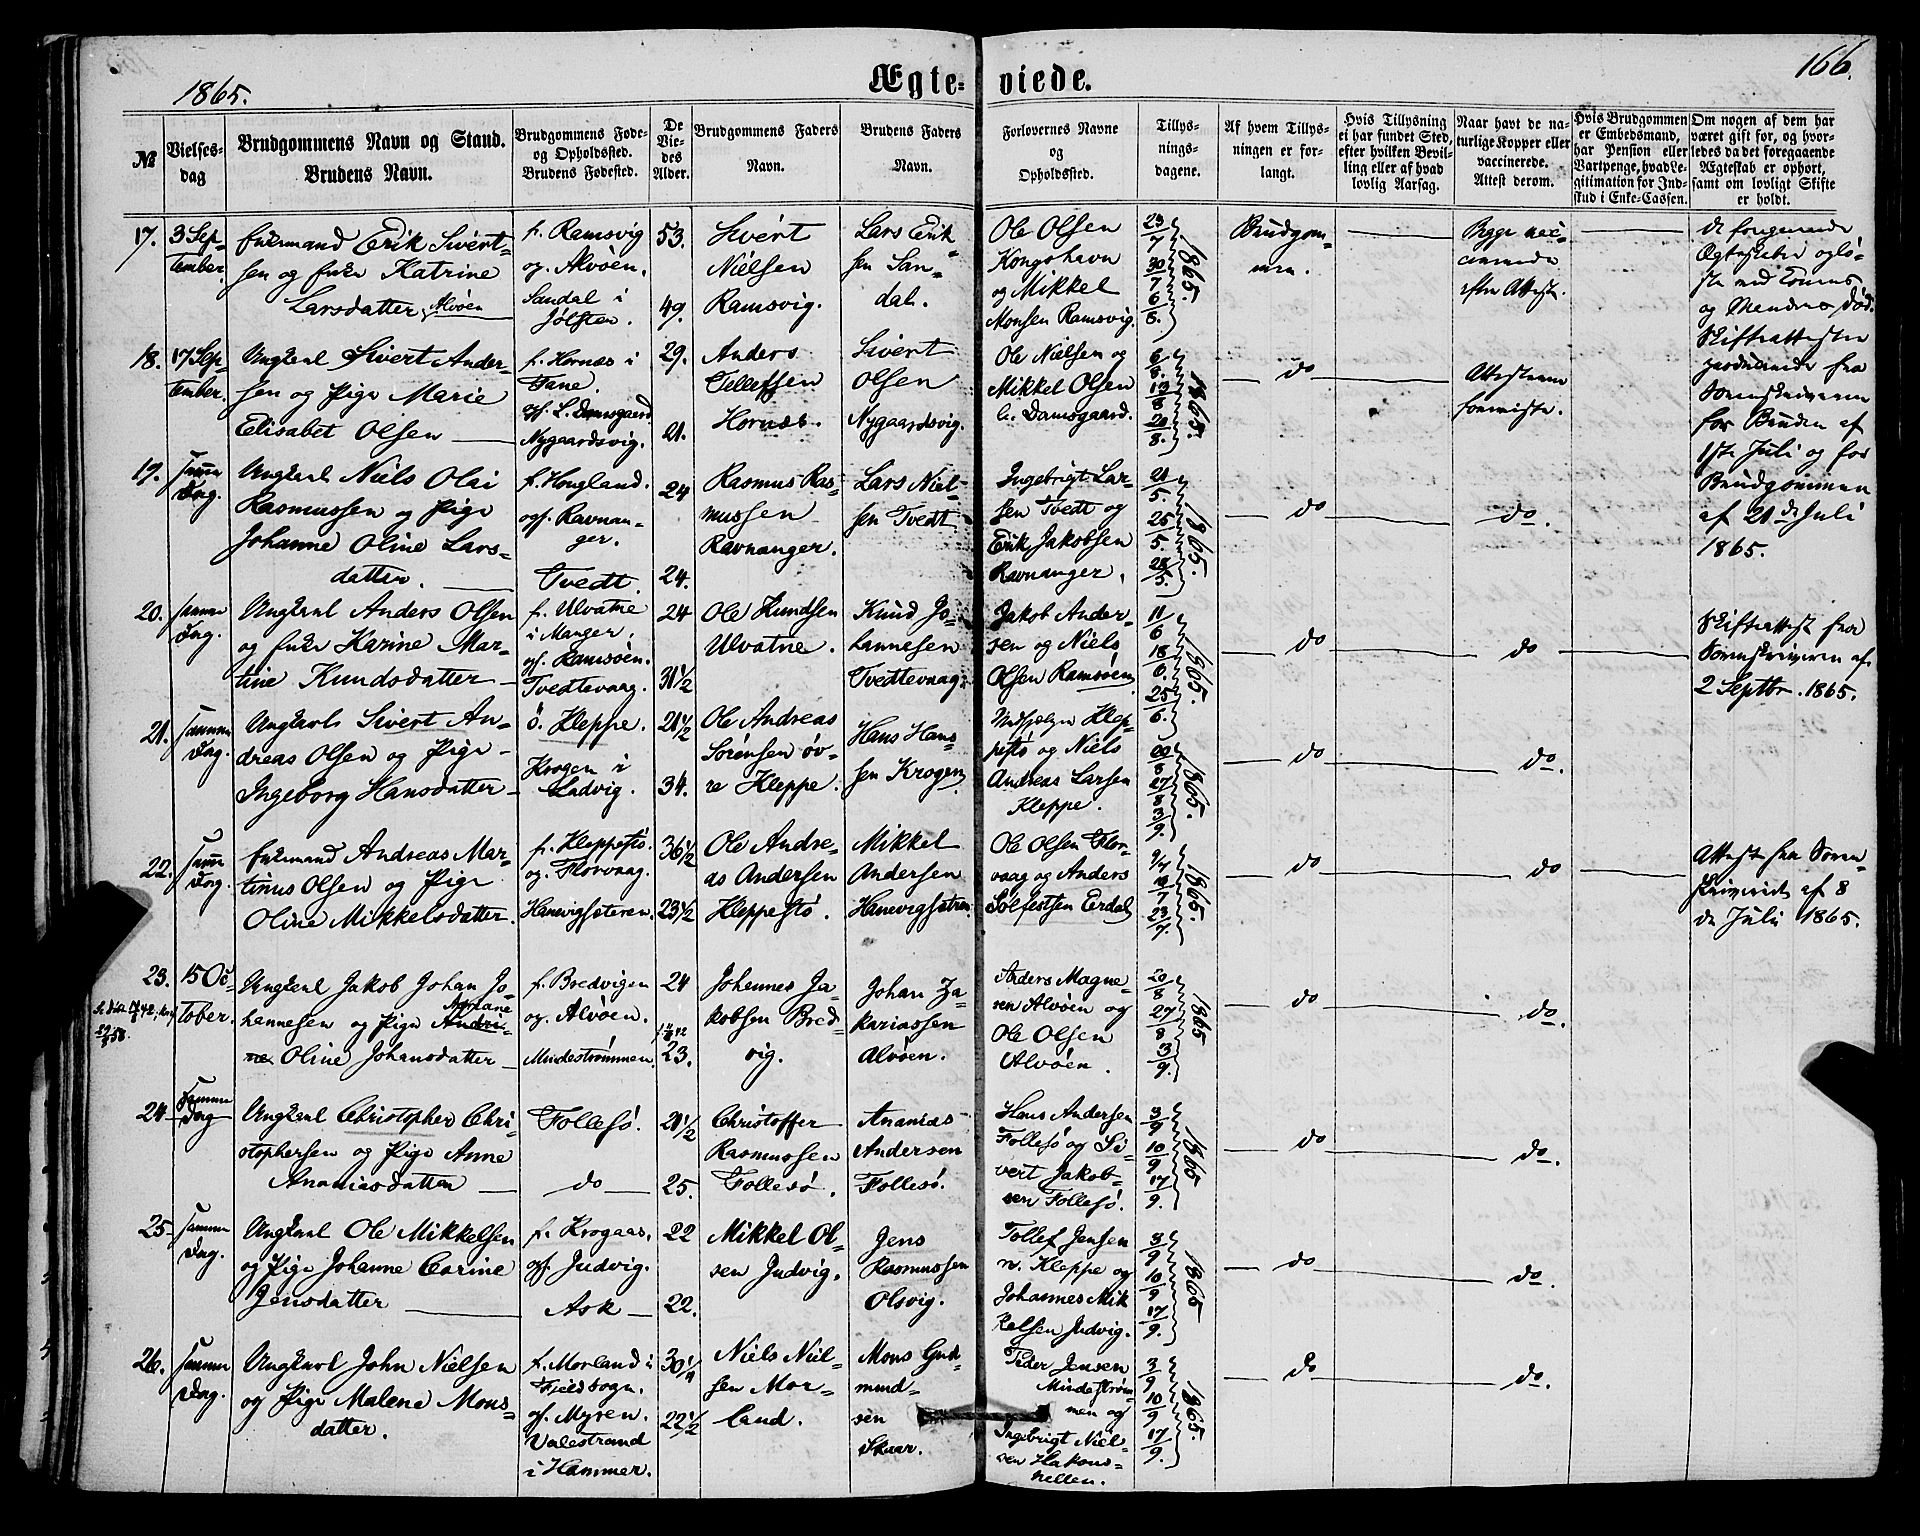 1865.
Ægte-
viede.
166.
№
Vielses-
dag
Brudgommens Navn og Stand.
Brudens Navn.
Brudgommens Føde-
og Opholdssted.
Brudens Fødested.
De
Vie-
des
Alder.
Brudgommens Faders
Navn.
Brudens Faders
Navn.
Forlovernes Navne
og
Opholdssted.
Tillys-
nings-
dagene.
Af hvem Tillys-
ningen er for-
langt.
Hvis Tillysning
ei har fundet Sted,
efter hvilken Bevil-
ling eller af hvad
lovlig Aarsag.
Naar havt de na-
turlige Kopper eller
vaccinerede.
Attest derom.
Hvis Brudgommen
er Embedsmand,
har Pension eller
Vartpenge, hvad Le-
gitimation for Ind-
skud i Enke-Cassen.
Om nogen af dem har
været gift før, og hvor-
ledes da det foregaaende
Ægteskab er ophørt,
samt om lovligt Skifte
er holdt.
17.
3 Sep-
tember.
Enkemand Erik Sivert-
sen og Enke Katrine
Larsdatter, Alvøen
f. Ramsvig
og. Alvøen.
Sandal i
Jølster.
53.
49.
Sivert
Nielsen
Ramsvig.
Lars Erik
sen San-
dal.
Ole Olsen
Kongshavn
og Mikkel
Monsen Ramsvig.
23/7
30/7
6/8.
1865.
Brudgom-
men.
Begge vac-
cinerede
efter Attest.
de foregaaende
Ægteskaber oplø-
ste ved Konens
og Mandens Død.
Skifteattester
producerede fra
Sorenskriveren
for Bruden af
1ste Juli og for
Brudgommen
af 21de Juli
1865.
18.
17 Sep-
tember.
Ungkarl Sivert Ander-
sen og Pige Marie
Elisabet Olsen
f. Hornæs i
Fane.
opf. L. Damsgaard
Nygaardsvig.
29.
21.
Anders
Telleffsen
Hornæs.
Sivert
Olsen
Nygaardsvig.
Ole Nielsen og
Mikkel Olsen
L. Damsgaard.
6/8.
13/8
20/8.
1865.
do
Attesterne
foreviste.
19.
samme
Dag.
Ungkarl Niels Olai
Rasmussen og Pige
Johanne Oline Lars-
datter.
f. Hougland.
opf. Ravnan-
ger.
Tvedt.
24
24.
Rasmus Ras-
mussen
Ravnanger.
Lars Niel-
sen Tvedt
Ingebrigt Lar-
sen Tvedt og
Erik Jakobsen
Ravnanger.
21/5.
25/5.
28/5.
1865.
do
do.
20.
samme
Dag.
Ungkarl Anders Olsen
og Enke Karine Mar-
tine Knudsdatter
f. Ulvatne
i Manger.
opf. Ramsøen.
Tvedtevaag.
24
31 1/2
Ole Knudsen
Ulvatne.
Knud Jo-
hannesen
Tvedtevaag.
Jakob Ander-
sen og Niels
Olsen Ramsøen
11/6
18/6.
25/6.
1865.
do
do
Skifteattest fra
Sorenskriveren af
2 Septbr. 1865.
21.
samme
Dag.
Ungkarl Sivert An-
dreas Olsen og Pige
Ingeborg Hansdatter
ö. Kleppe.
Krogen i
Ladvig.
21 1/2
34.
Ole Andreas
Sörensen öv-
re Kleppe.
Hans Hans-
sen Krogen
Klep-
pestö og Niels
Andreas Larsen
Kleppe.
20/8
27/8
3/9.
1865.
do
do.
22.
samme
Dag.
Enkemand Andreas Mar-
tinus Olsen og Pige
Oline Mikkelsdatter.
f. Kleppestö.
og. Florvaag.
Hanevigsæteren.
36 1/2
23 1/2
Ole Andre-
as Andersen
Kleppestö.
Mikkel
Andersen
Hanevigsætren
Ole Olsen Flor-
vaag og Anders
Solfestsen Erdal
9/7
16/7
23/7.
1865.
do
do
Attest fra Soren
skriveren af 8
de Juli 1865.
23.
15 Oc-
tober.
Ungkarl Jakob Johan Jo-
hannesen og Pige Andri-
ne Oline Johansdatter
f. Bredvigen
og. Alvøen.
Mindeströmmen.
24
23.
Johannes Ja-
kobsen Bred
vig.
Johan Za-
kariassen
Alvöen.
Anders Magne-
sen Alvöen og
Ole Olsen
Alvöen.
20/8
27/8
3/9.
1865
do
do.
24.
samme
Dag
Ungkarl Christopher Chri-
stophersen og Pige Anne
Ananiasdatter
Follesö.
do
21 1/2
25.
Christoffer
Rasmussen
Follesö.
Ananias
Andersen
Follesö.
Hans Andersen
Follesö og Si-
vert Jakob-
sen Follesö.
3/9
10/9
17/9.
1865
do
do.
25.
samme
Dag.
Ungkarl Ole Mikkelsen
og Pige Johanne Carine
Jensdatter
f. Krogaas.
opf. Judvig.
Ask
22
22.
Mikkel Ol-
sen Judvig.
Jens
Rasmussen
Olsvig.
Tollef Jensen
n. Kleppe og
Johannes Mik
kelsen Judvig.
3/9
10/9
17/9.
1865
do
do.
26.
samme
Dag.
Ungkarl John Nielsen
og Pige Malene Mons-
datter.
f. Morland i
Fjeldsogn.
opf. Myren.
Valestrand
i Hammer.
22 1/2
Niels Niel-
sen Mor-
land.
Mons Gud-
mund-
sen
Skaar.
Peder Jensen
Mindeström-
men og
Ingebrigt Niel-
sen Hakons-
hellen.
3/9
10/9
17/9.
1865.
do
do.